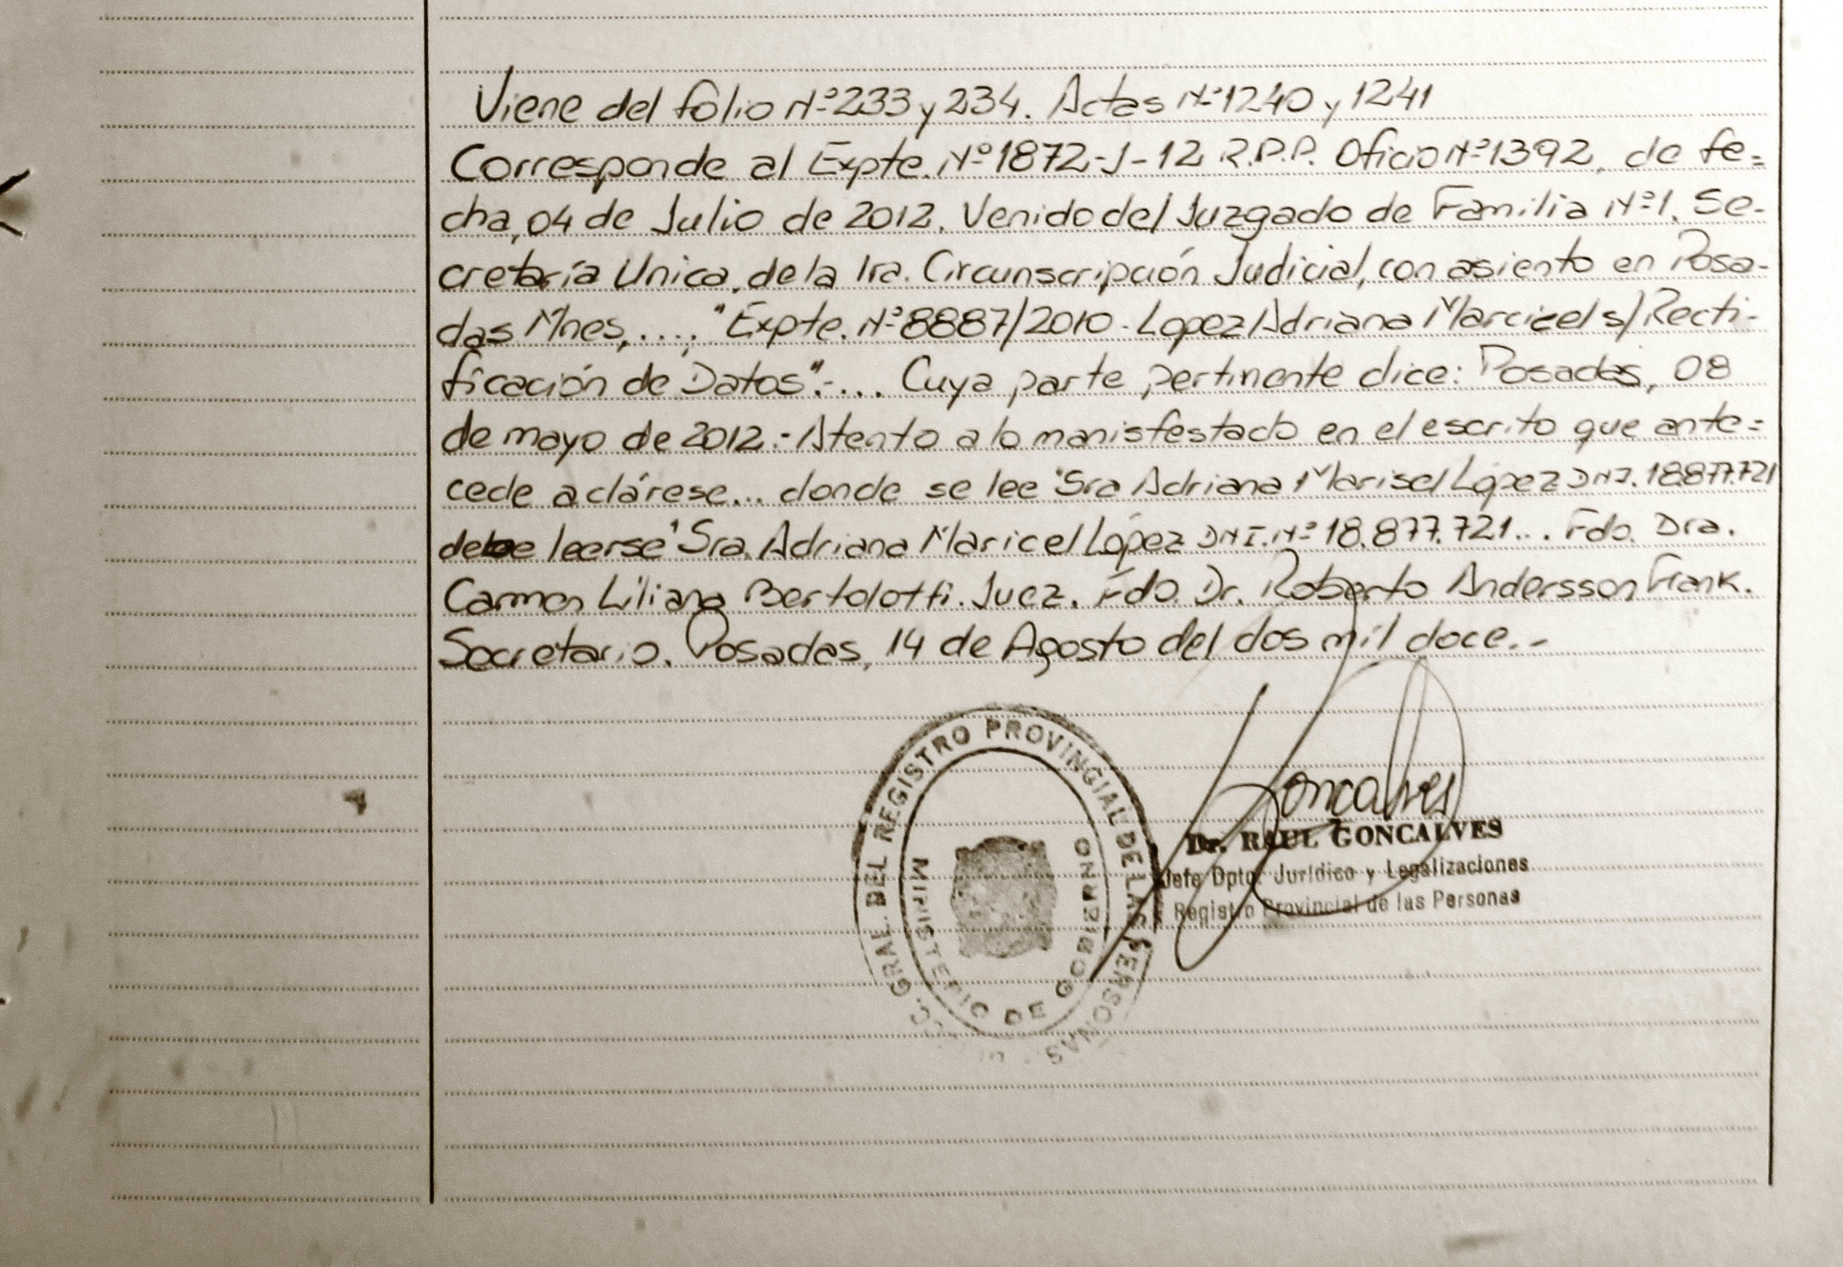 Viene del folio Nº 233 y 234. Actas Nº 1240 y 1241
Corresponde al Expte. Nº 1872-J-12 R.P.P. Oficio Nº 1392, de fe=
cha, 04 de Julio de 2012. Venido del Juzgado de Familia Nº 1. Se-
cretaría Unica, de la 1ra. Circunscripción Judicial, con asiento en Posa-
das Mnes, ...., "Expte. Nº 8887/2010 - Lopez Adriana Maricel s/ Recti-
ficación de Datos".-... Cuya parte pertinente dice: Posadas, 08
de mayo de 2012.- Atento a lo manisfestado en el escrito que ante=
cede aclárese... donde se lee "Sra Adriana Marisel López DNI. 18.877.721
debe leerse "Sra. Adriana Maricel López DNI. Nº 18.877.721... Fdo. Dra.
Carmen Liliana Bertolotti. Juez. Fdo. Dr. Roberto Andersson Frank.
Secretario. Posadas, 14 de Agosto del dos mil doce.-
GRAL. DEL REGISTRO PROVINCIAL DE LAS PERSONAS
MINISTERIO DE GOBIERNO
Goncalves
Dr. RAUL GONCALVES
Jefe Dpto. Jurídico y Legalizaciones
Registro Provincial de las Personas